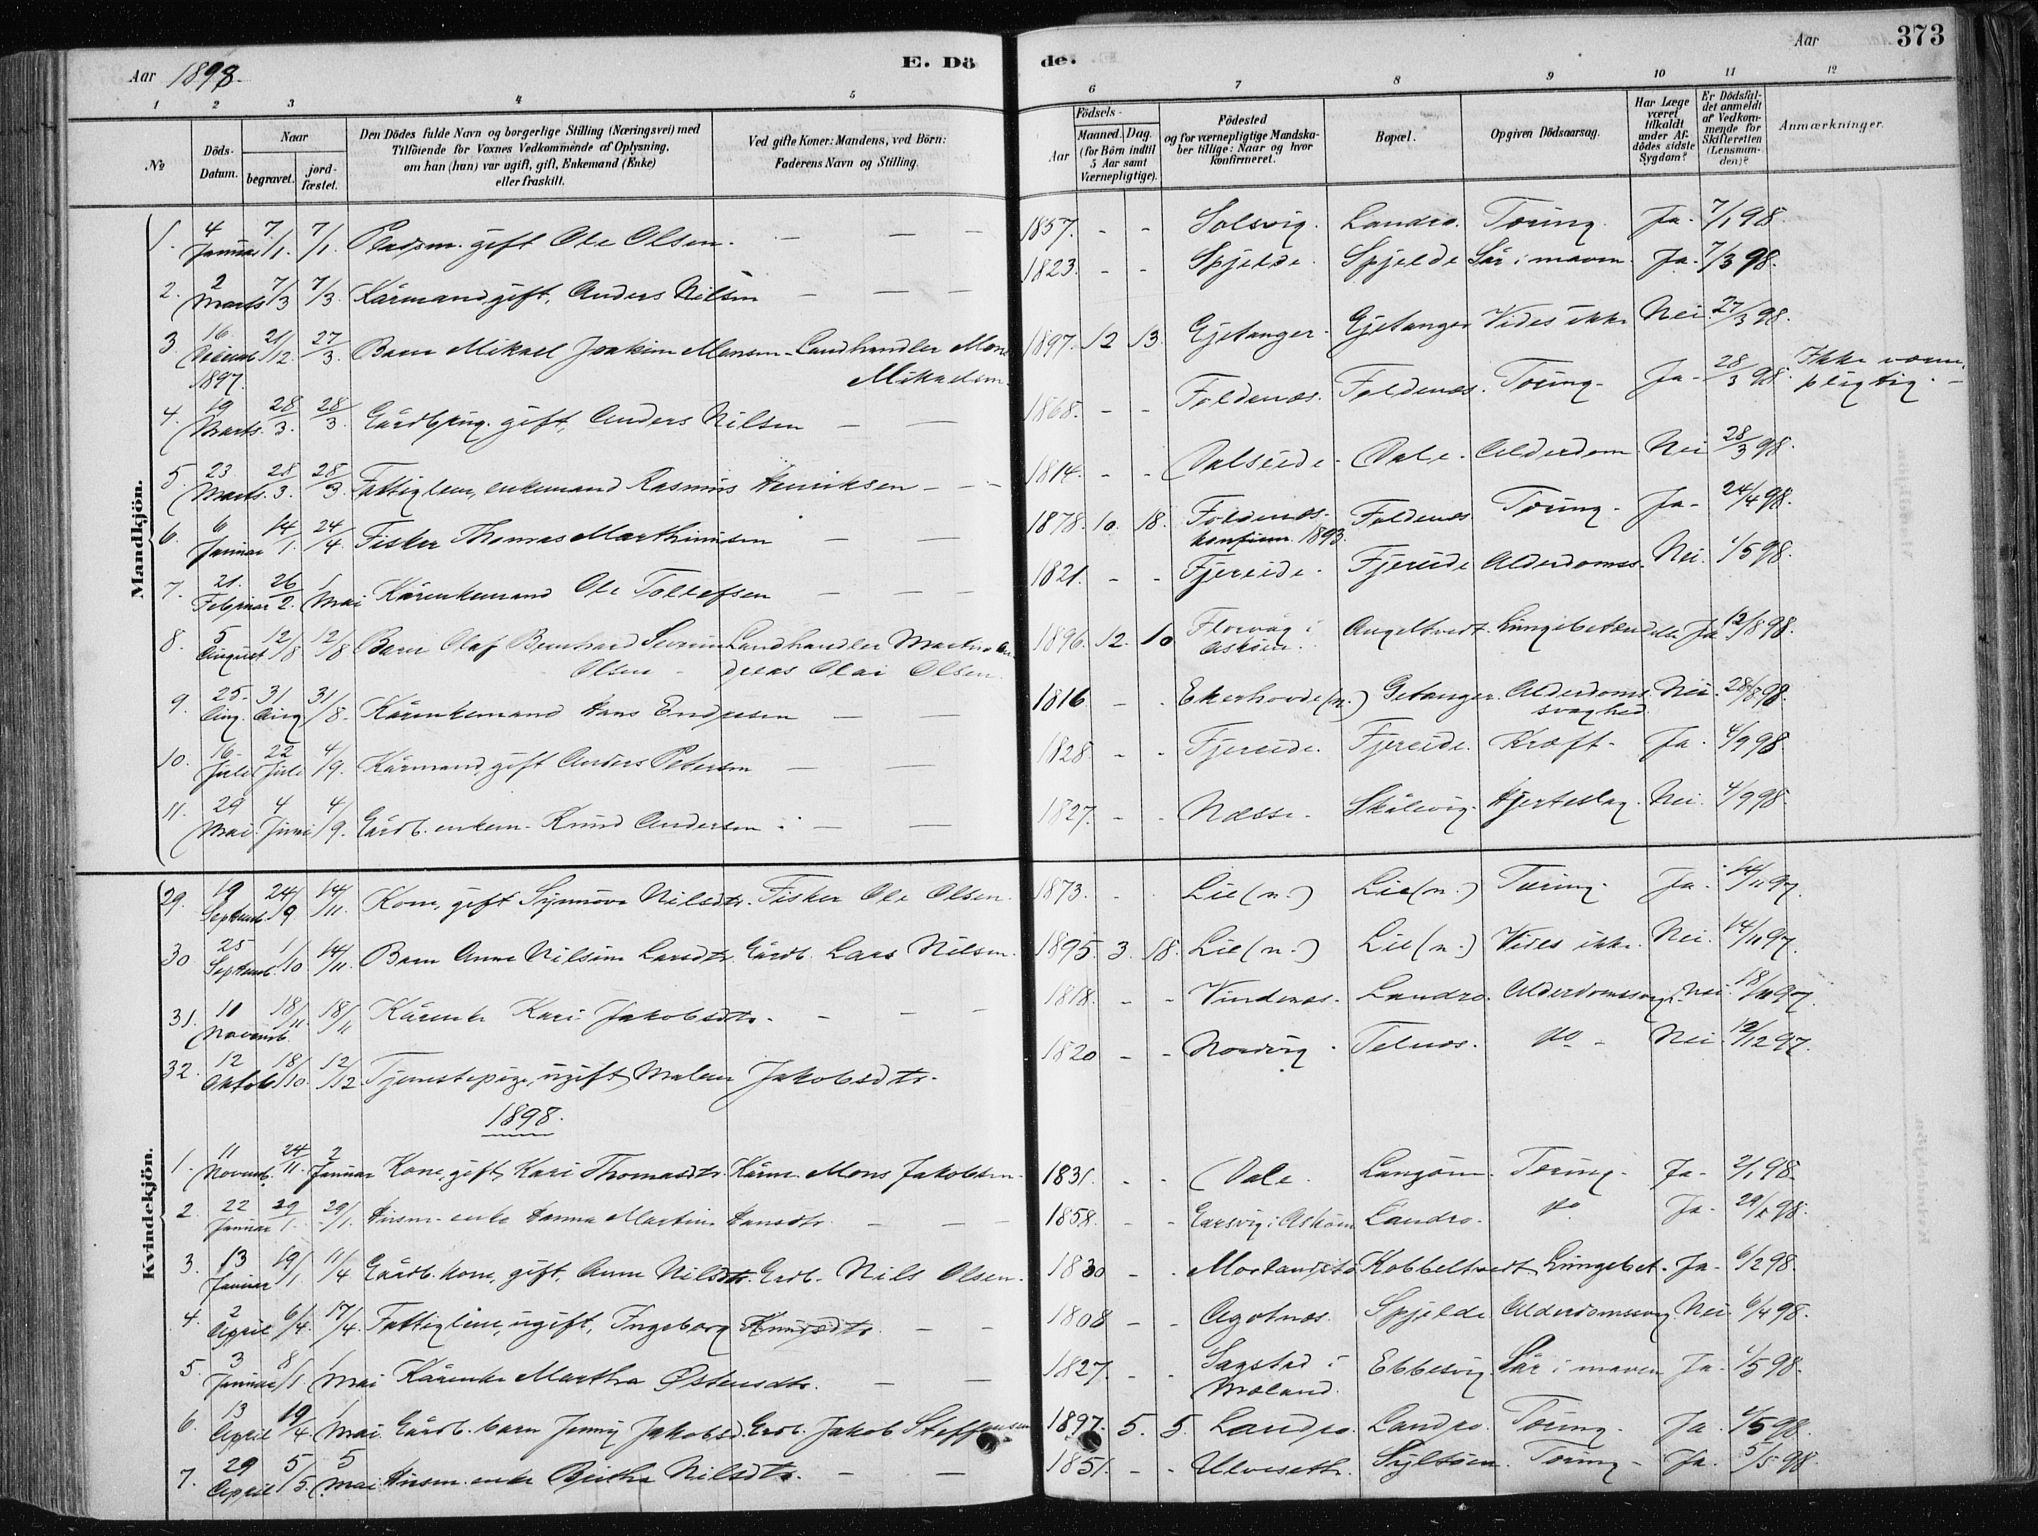 Aar 1898. E. Dö de. Aar 373
1 2 3 4 5 6 7 8 9 10 11 12
№ Döds-Datum. Naar begravet. jord-fæstet. Den Dödes fulde Navn og borgerlige Stilling (Næringsvei) med Tilföiende for Voxnes Vedkommende af Oplysning, om han (hun) var ugift, gift, Enkemand (Enke) eller fraskilt. Ved gifte Koner: Mandens, ved Börn: Faderens Navn og Stilling. Födsels- Aar Maaned. Dag. (for Börn indtil 5 Aar samt Værnepligtige). Födested og for værnepligtige Mandskaber tillige: Naar og hvor konfirmeret. Bopæl. Opgiven Dödsaarsag. Har Læge været tilkaldt under Afdödes sidste Sygdom? Er Dödsfaldet anmeldt af Vedkommende for Skifteretten (Lensmanden)? Anmærkninger.
Mandkjön.
1. 4 Januar 7/1. 7/1. gift Ole Olsen. — — — 1857. - - Solsvig. Landro. Tæring. Ja. 7/1 98.
2. 2 Marts 7/3 7/3. Kårmand gift, Anders Nilsen — — — 1823. - - Spjelde. Spjelde Sår i maven. Ja. 7/3 98.
3. 16 Decemb 1897. 21/12. 27/3. Barn Mikael Joakim Monsen - Landhandler Mons Mikaelsen. 1897. 12 13. Gjetanger. Gjetanger Vides ikke Nei. 27/3 98.
4. 19 Marts. 28/3. 28/3. Gårdbrug. gift, Anders Nilsen — — 1868. - - Foldenæs. Foldenæs. Tæring. Ja - 28/3 98. Ikke værnepligtig. -
5. 23 Marts. 28/3. 28/3. Fattiglem, enkemand Rasmus Henriksen - - - 1814. - - Valseide. Vale. Alderdom Nei 28/3 98.
6. 6 Januar 14/1. 24/4 Fisker Thomas Marthinusen — — 1878. 10. 18. Foldenæs. konfirm. 1893. Foldenæs Tæring. Ja - 24/4 98.
7. 21. Februar 26/2. 1 Mai Kårenkemand Ole Tollefsen — — 1821. - - Fjereide. Fjereide Alderdomss. Nei. 1/5 98.
8. 5 August 12/8 12/8 Barn Olaf Bernhard Severin Olsen - Landhandler Martin Andreas Olai Olsen. 1896. 12. 10 Florvåg i Askøen. Angeltvedt. Lungebetændelse Ja 12/8 98.
9. 25. Aug. 31 Aug 31/8. Kårenkemand Hans Endresen — — 1816 - - Ekerhovde (n.) Getanger. Alderdoms svaghed. Nei. 28/8 98.
10. 16. Juli 22 Juli 4/9. Kårmand, gift Anders Petersen — — 1828 - - Fjereide. Fjereide. Kræft. Ja. 4/9 98
11. 29 Mai. 4 Juni 4/9. Gårdb. enkem. Knud Andersen. — — 1827. - - Næsse. Skålevig. Hjerteslag. Nei. 4/9 98.
Kvindekjön.
29. 19 Septemb. 24/9 14/11. Kone, gift Synnøve Nilsdtr. Fisker Ole Olsen. 1873. - - Lie (n.) Lie (n.) Tæring. Ja. 14/11 97.
30 25 Septemb. 1/10 14/11. Barn Anne Nilsine Larsdtr. Gårdb. Lars Nilsen. 1895. 3. 18. Lie (n.) Lie (n.) Vides ikke. Nei. 14/11 97.
31. 10 Novemb. 18/11 18/11 Kårenke Kari Jakobsdtr. - - - 1818. - - Vindenæs. Landro. Alderdomssvagh. Nei. 18/11 97.
32. 12 Oktob 18/10. 12/12 Tjenestepige, ugift, Malene Jakobsdtr. 1820 - - Nordvig. Telnæs. Do - Nei. 12/12 97.
1898.
1. 11 Novemb. 24/11. 2 Januar Kone, gift, Kari Thomasdtr. Kårm. Mons Jakobsen. 1831. - - Vale. Langøen. Tæring. Ja - 2/1 98.
2. 22 Januar 29/1. 29/1. Husm. enke Hanna Martine Hansdtr. — — 1858. - - i Askøen Landro. Do Ja. 29/1 98.
3. 13 Januar 19/1. 11/4 Gårdb. kone, gift, Anne Nilsdtr. Grdb. Nils Olsen. 1830 - - Kobbeltvedt Lungebet. Ja. 6/2 98.
4. 2 April 6/4. 17/4. Fattiglem, ugift, Ingeborg Knudsdtr. — — 1808 - - Agotnæs. Spjelde Alderdomssvag Nei. 6/4 98.
5. 3 Januar 8/1. 1 Mai Kårenke Martha Østensdtr. — — 1827. - - Sagstad i Mæland. Ebbesvig Sår i maven Ja. 1/5 98.
6. 13 April 19/4. 1 Mai. Gårdb. barn Jenny Jakobsd. Grdb. Jakob Steffensen 1897. 5. 5. Landro. Landro. Tæring. Ja. 1/5 98.
7. 29 April 5/5. 5 Mai Husm. enke Birthe Nilsdtr. — — 1851. - - Ulveseth. Syltøen. Tæring - Ja. 5/5 98.